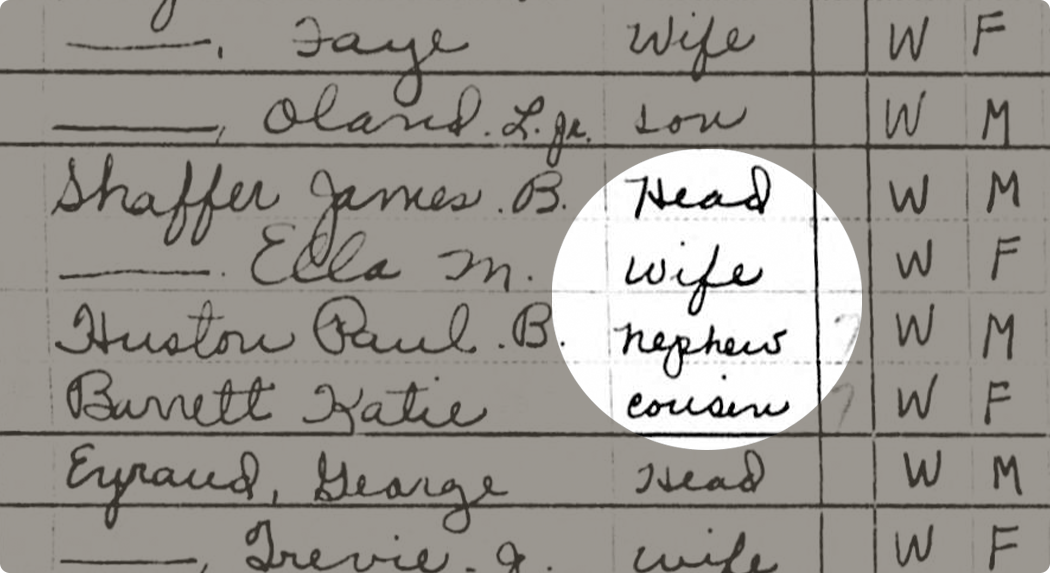 ———, Faye Wife W F
———, Oland. L. Jr. son W M
Shaffer James. B. Head W M
———. Ella M. Wife W F
Huston Paul. B. Nephew 7 W M
Barrett Katie cousin 7 W F
Eyraud, George Head W M
———, Trevie. J. Wife W F